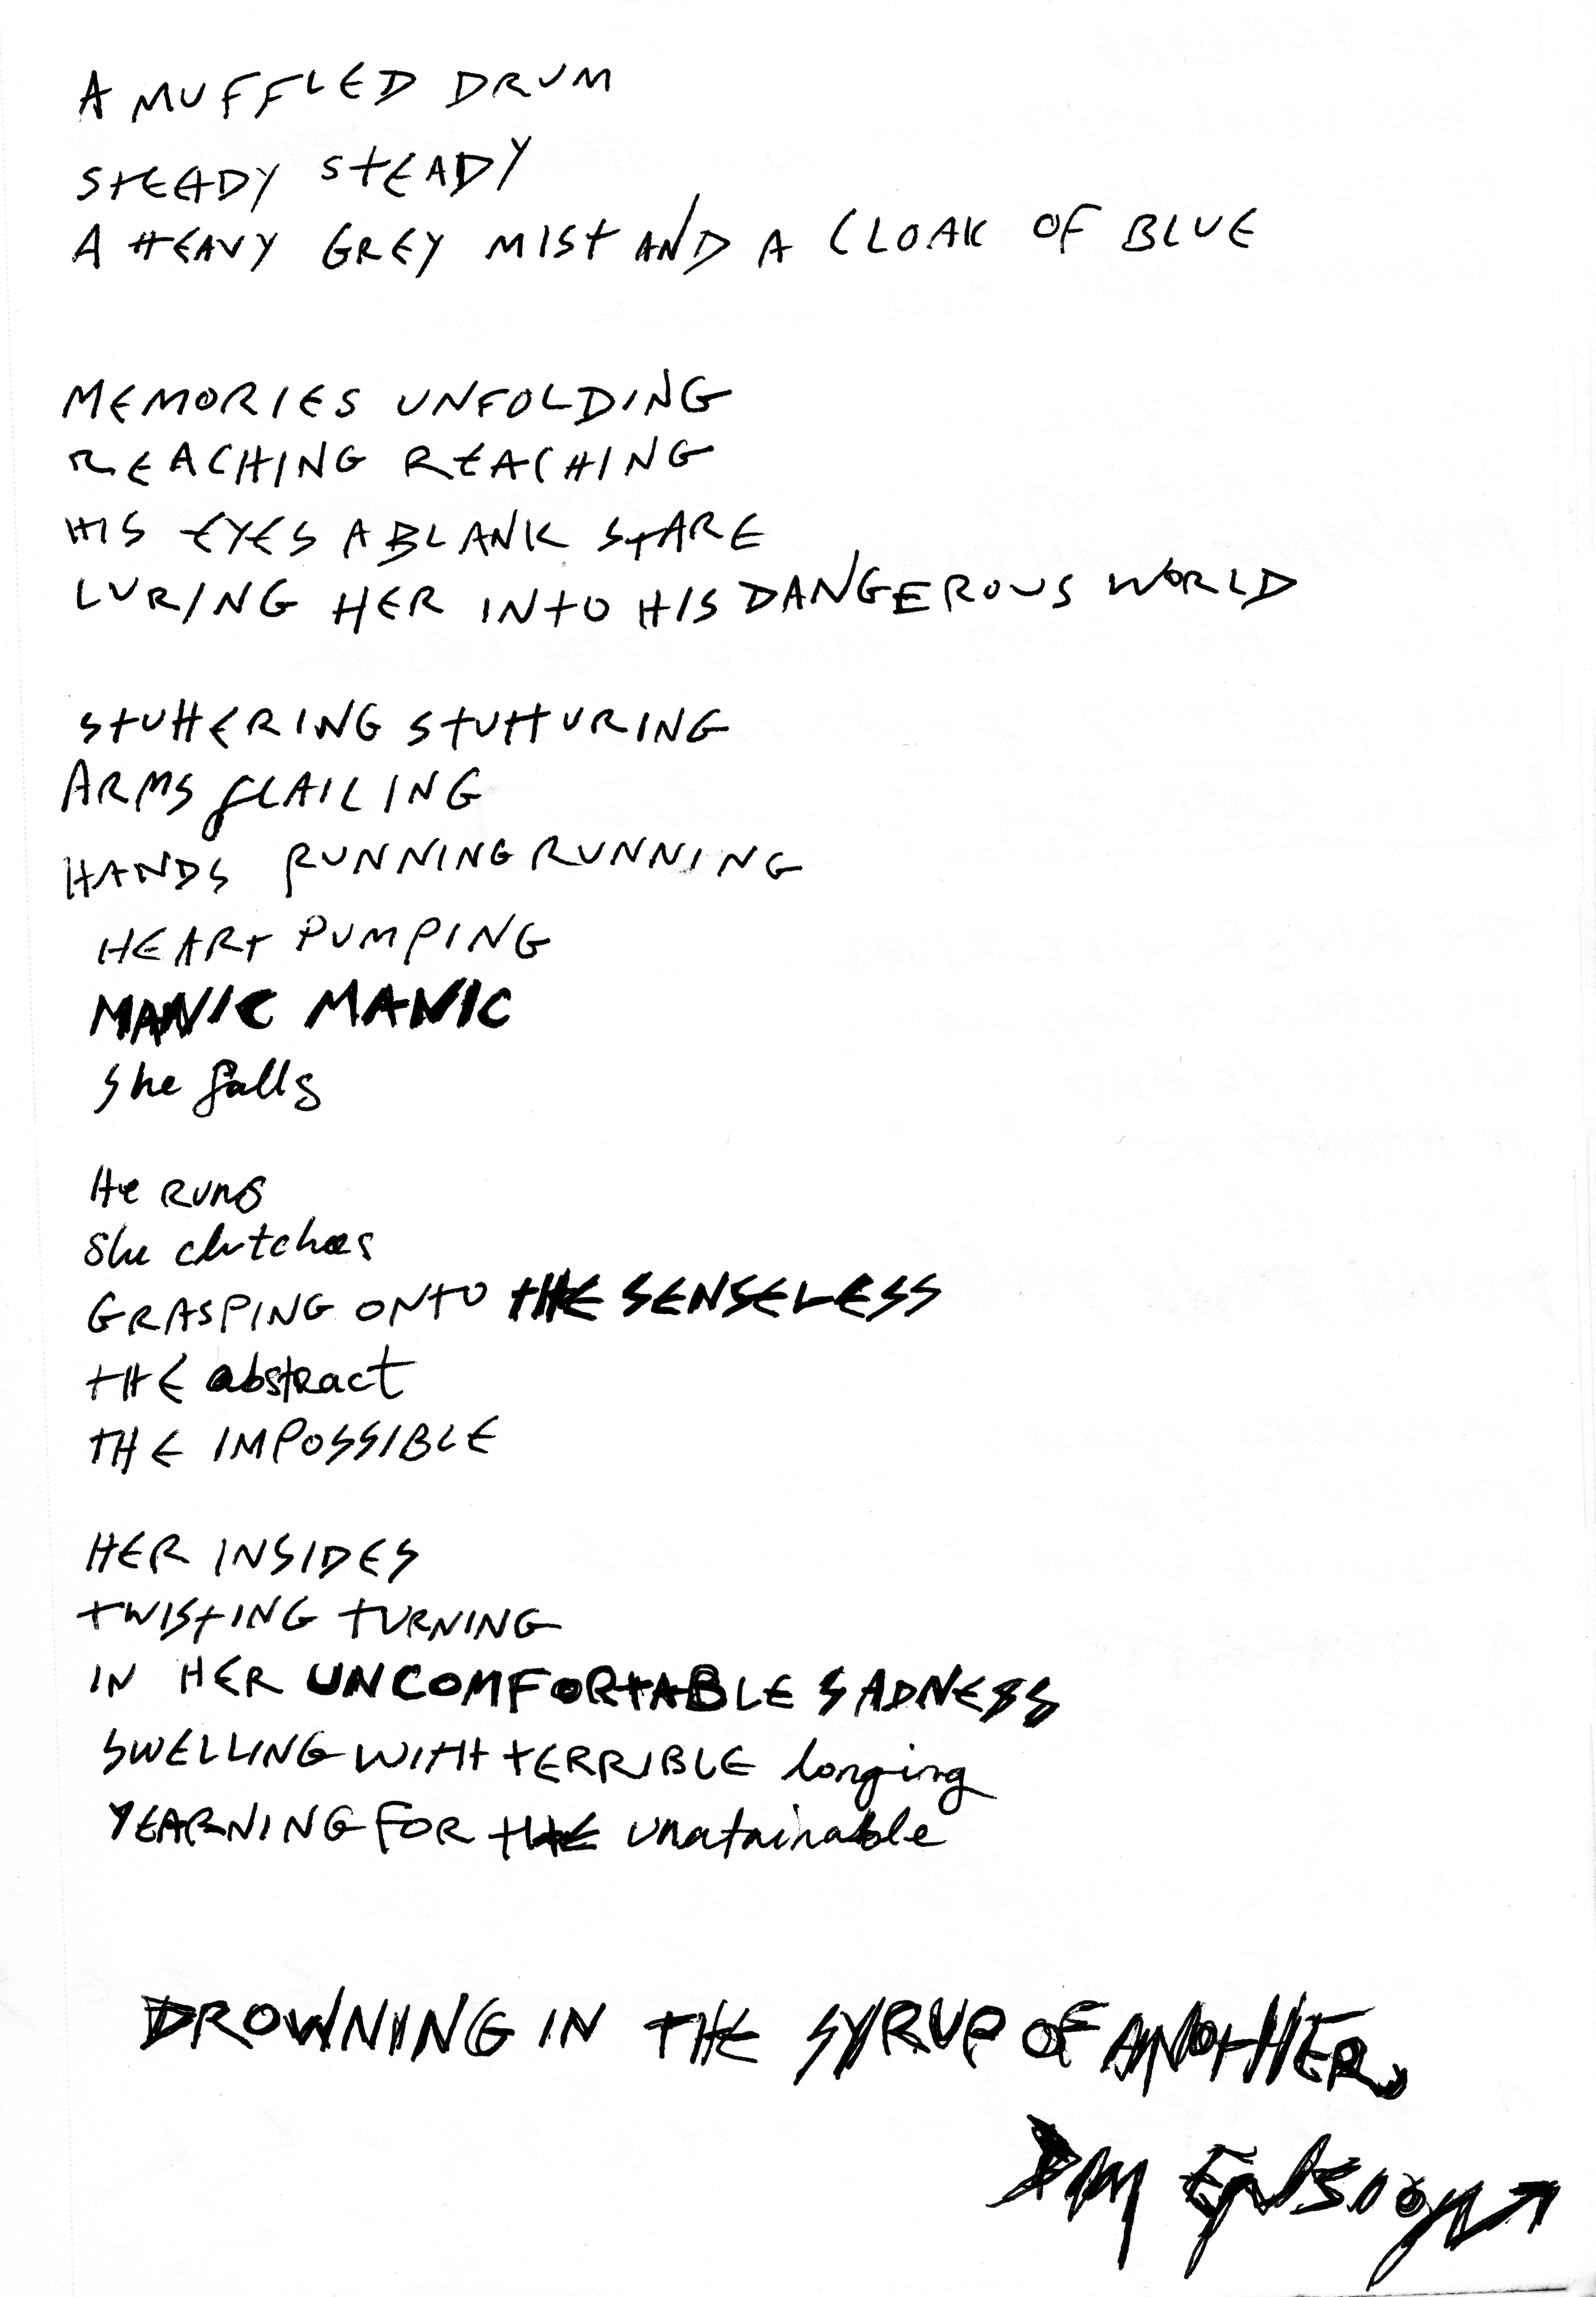 A MUFFLED DRUM
STEADY STEADY
A HEAVY GREY MIST AND A CLOAK OF BLUE
MEMORIES UNFOLDING
REACHING REACHING
HIS EYES A BLANK STARE
LURING HER INTO HIS DANGEROUS WORLD
STUTTERING STUTTURING
ARMS fLAILING
HANDS RUNNING RUNNING
HEART PUMPING
MANIC MANIC
She falls
He RUNS
She clutches
GRASPING ONTO THE SENSELESS
THE abstract
THE IMPOSSIBLE
HER INSIDES
TWISTING TURNING
IN HER UNCOMFORTABLE SADNESS
SWELLING WITH TERRIBLE longing
YEARNING FOR THE unatainable
DROWNING IN THE SYRUP OF ANOTHER.